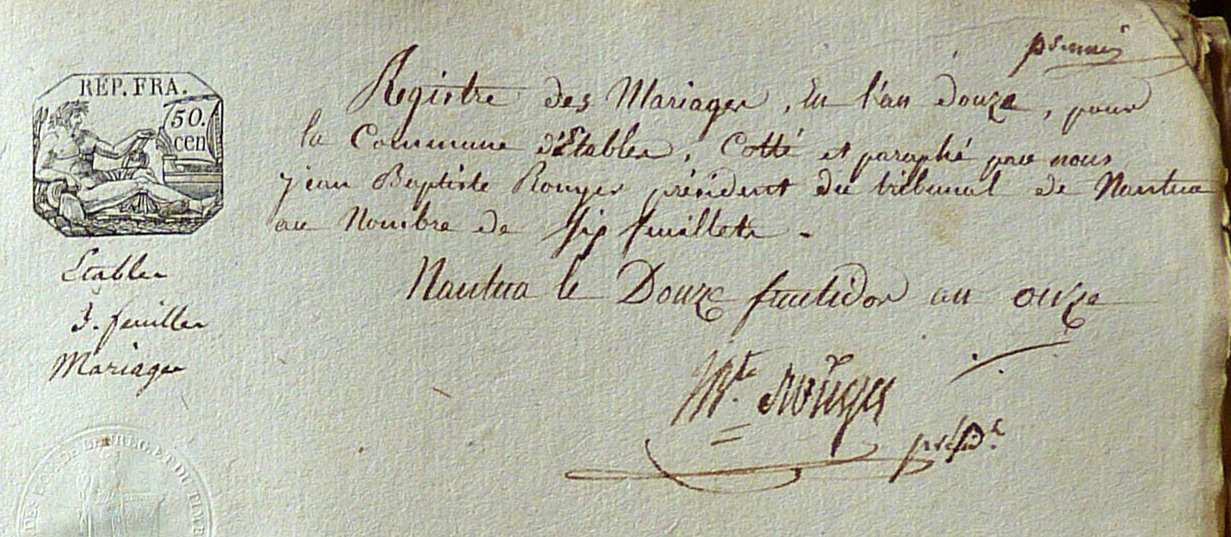 premier
RÉP. FRA.
50.
cen
Registre des Mariages, En l'an douze, pour
la Commune d'Etables, Cotté et paraphé par nous
jean Baptiste Rouyer président du tribunal de Nantua
au Nombre de six feuillets.
Nantua le Douze fructidor an onze
Etables
3. feuilles
Mariages
Bte. Rouyer
présidt.